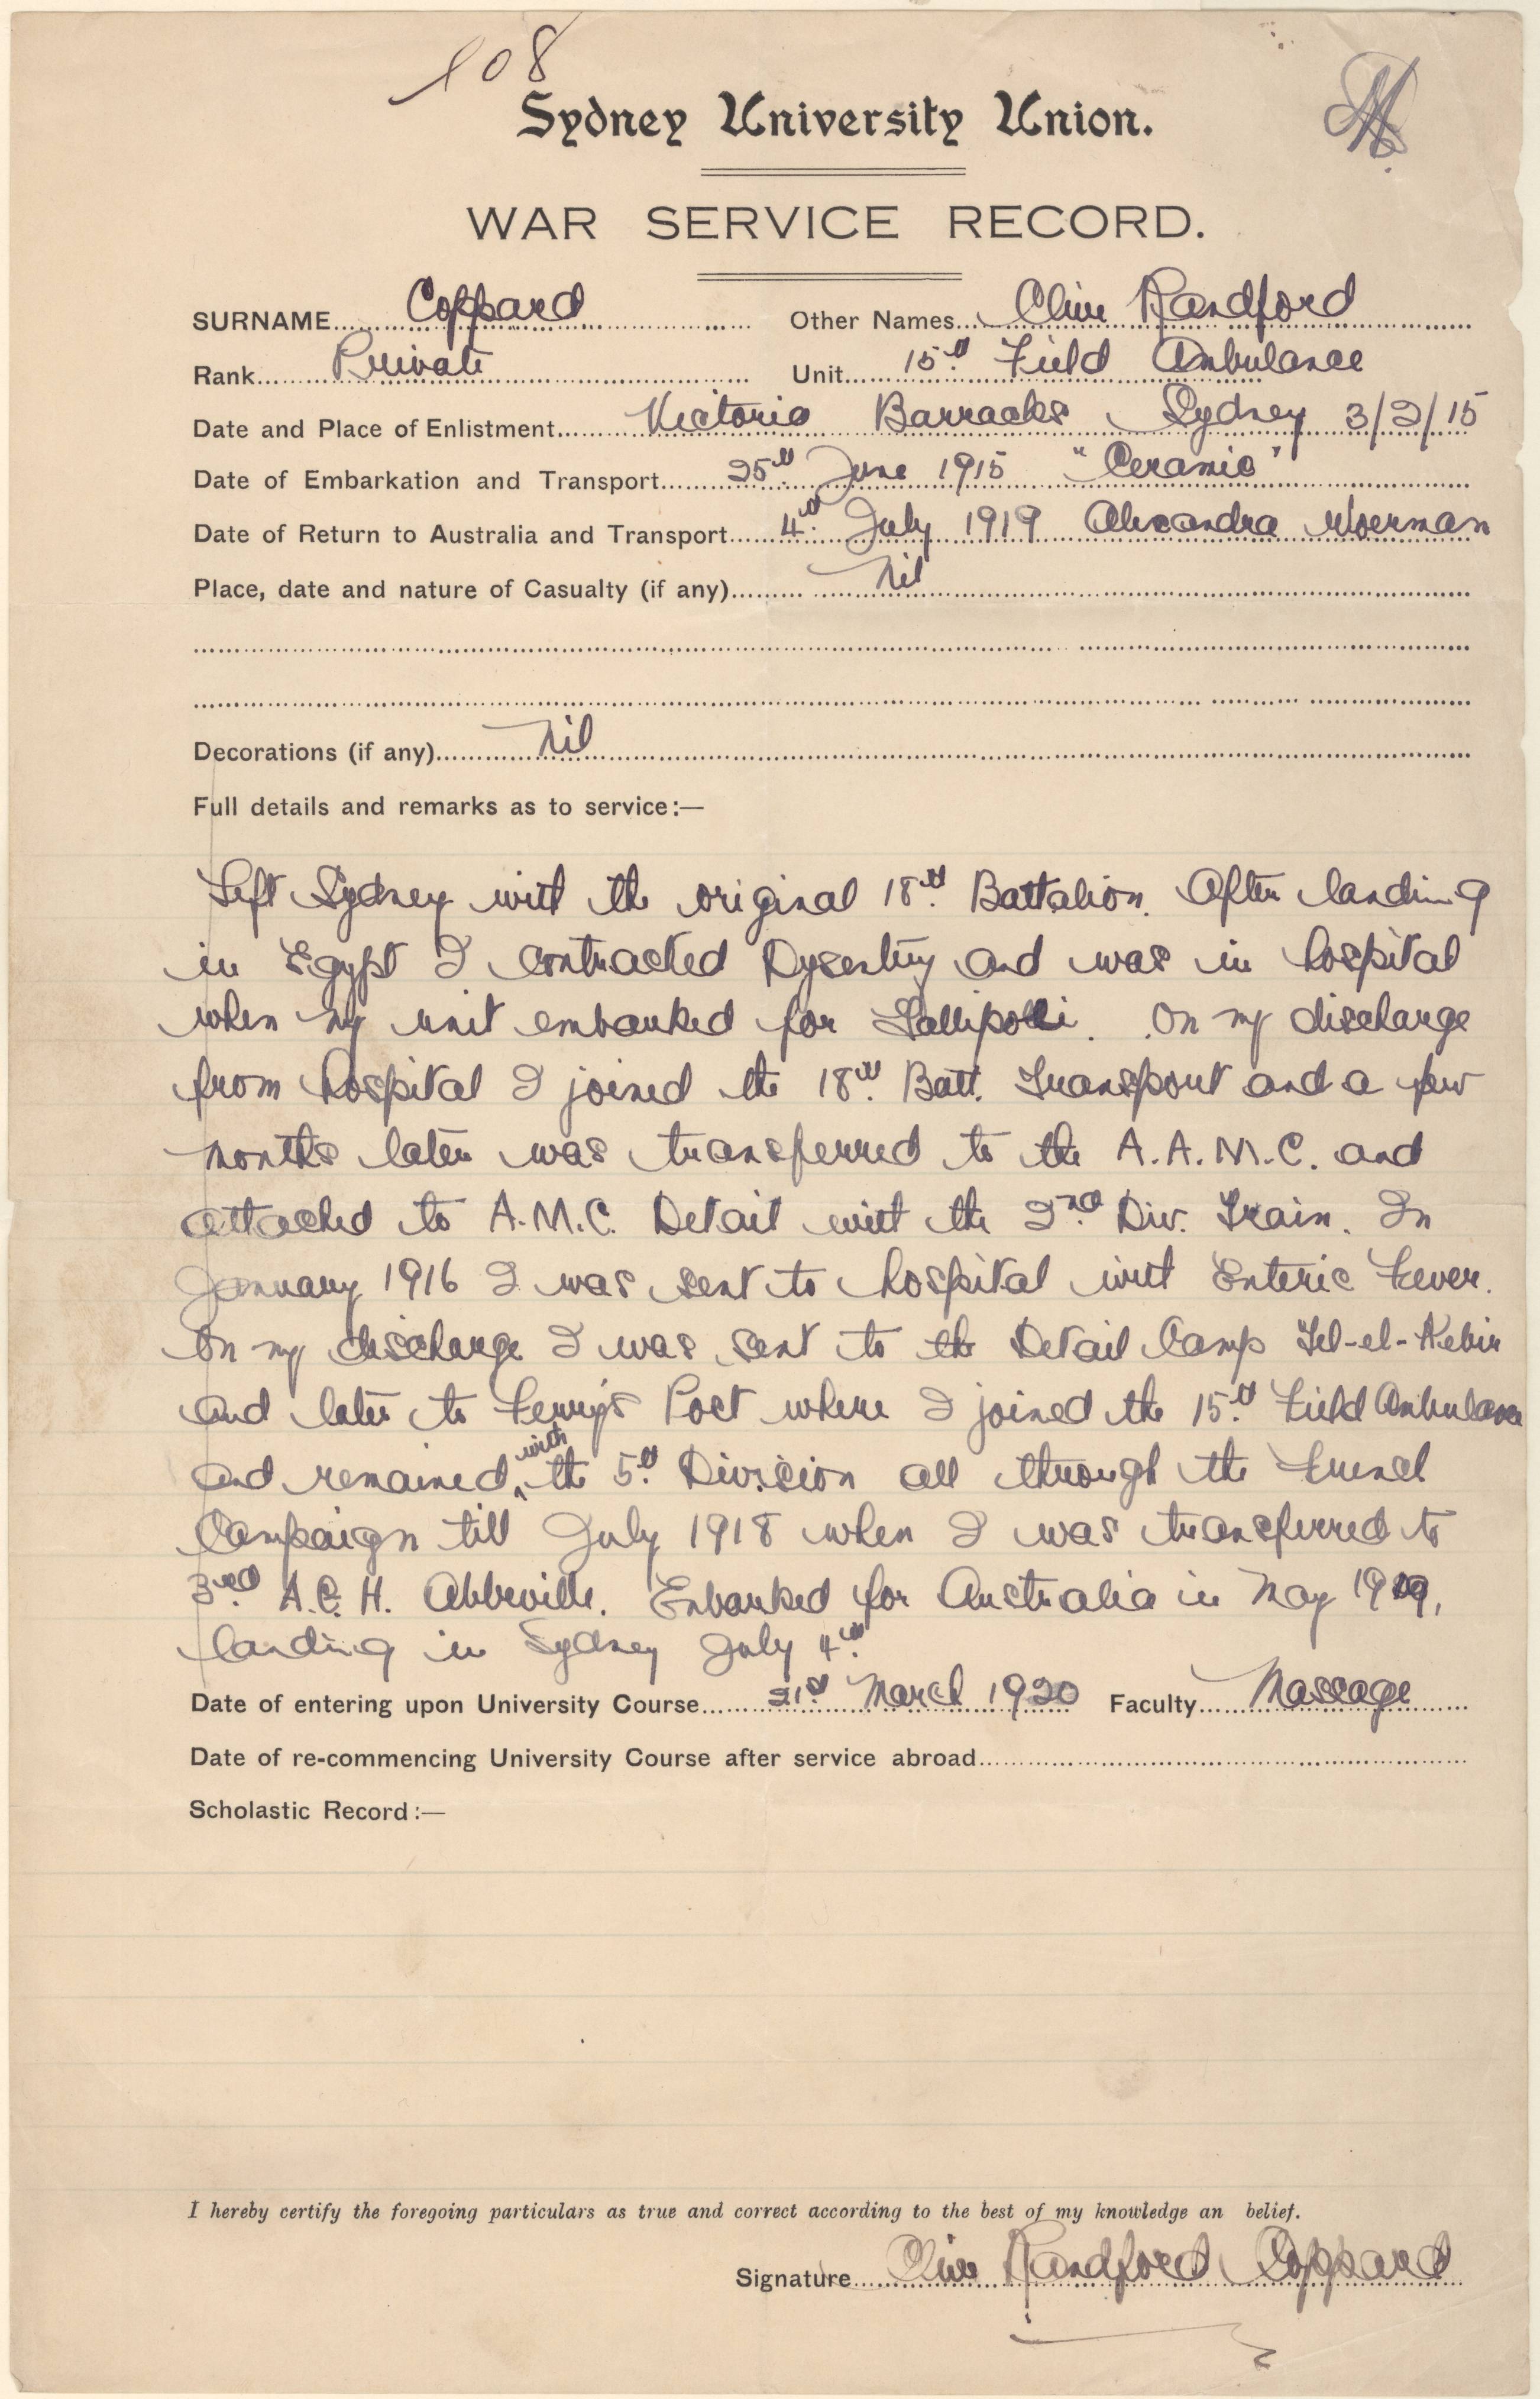 108
Sydney University Union.
WAR SERVICE RECORD.
SURNAME Coppard Other Names Clive Randford
Rank Private Unit 15th Field Ambulance
Date and Place of Enlistment Victoria Barracks Sydney 3/2/15
Date of Embarkation and Transport 25th June 1915 "Ceramic"
Date of Return to Australia and Transport 4th July 1919 Alexandra Woerman
Place, date and nature of Casualty (if any) Nil
Decorations (if any) Nil
Full details and remarks as to service:—
Left Sydney with the original 18th Battalion. After landing
in Egypt I contracted Dysentry and was in hospital
when my unit embarked for Gallipolli. On my discharge
from hospital I joined the 18th Batt. Transport and a few
months later was transferred to the A.A.M.C. and
attached to A.M.C. Detail with the 2nd Div. Train. In
January 1916 I was sent to hospital with Enteric Fever.
On my discharge I was sent to the Detail Camp Tel-el-Kebir
and later to Ferry's Post where I joined the 15th Field Ambulance
and remained with the 5th Division all through the French
Campaign till July 1918 when I was transferred to
3rd A.G.H. Abbeville. Embarked for Australia in May 1919,
landing in Sydney July 4th
Date of entering upon University Course 21st March 1920 Faculty Massage
Date of re-commencing University Course after service abroad
Scholastic Record:—
I hereby certify the foregoing particulars as true and correct according to the best of my knowledge an belief.
Signature Clive Randford Coppard